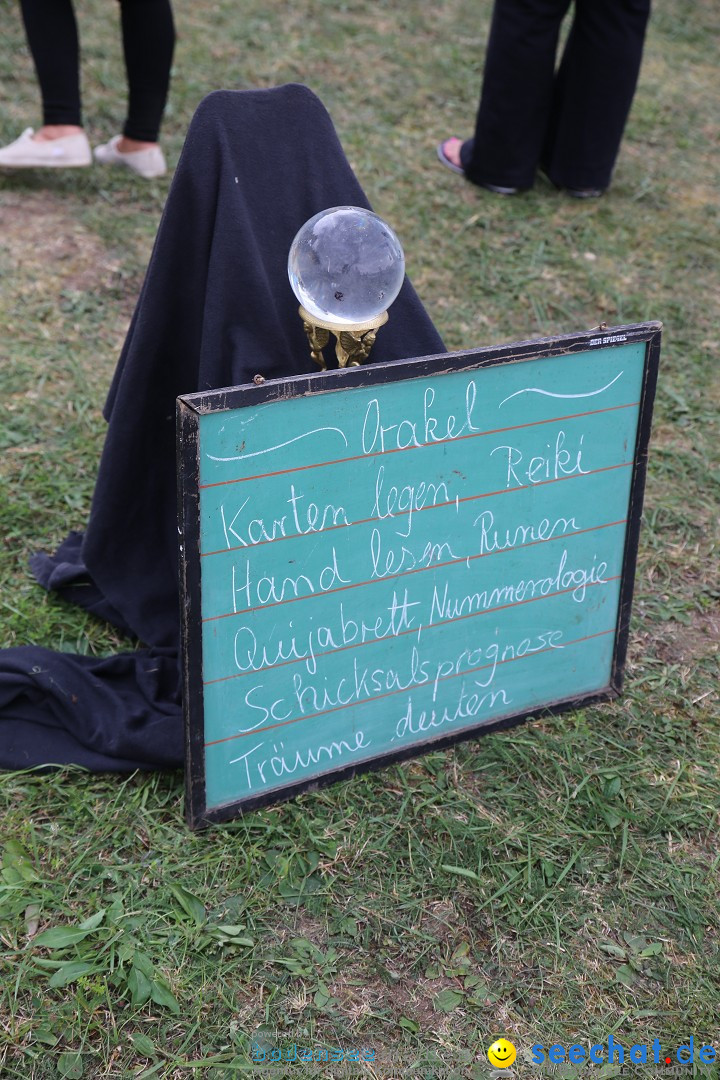 DER SPIEGEL
~ Orakel ~
Karten legen, Reiki
Hand lesen, Runen
Quijabrett, Nummerologie
Schicksalsprognose
Träume deuten
seechat.de